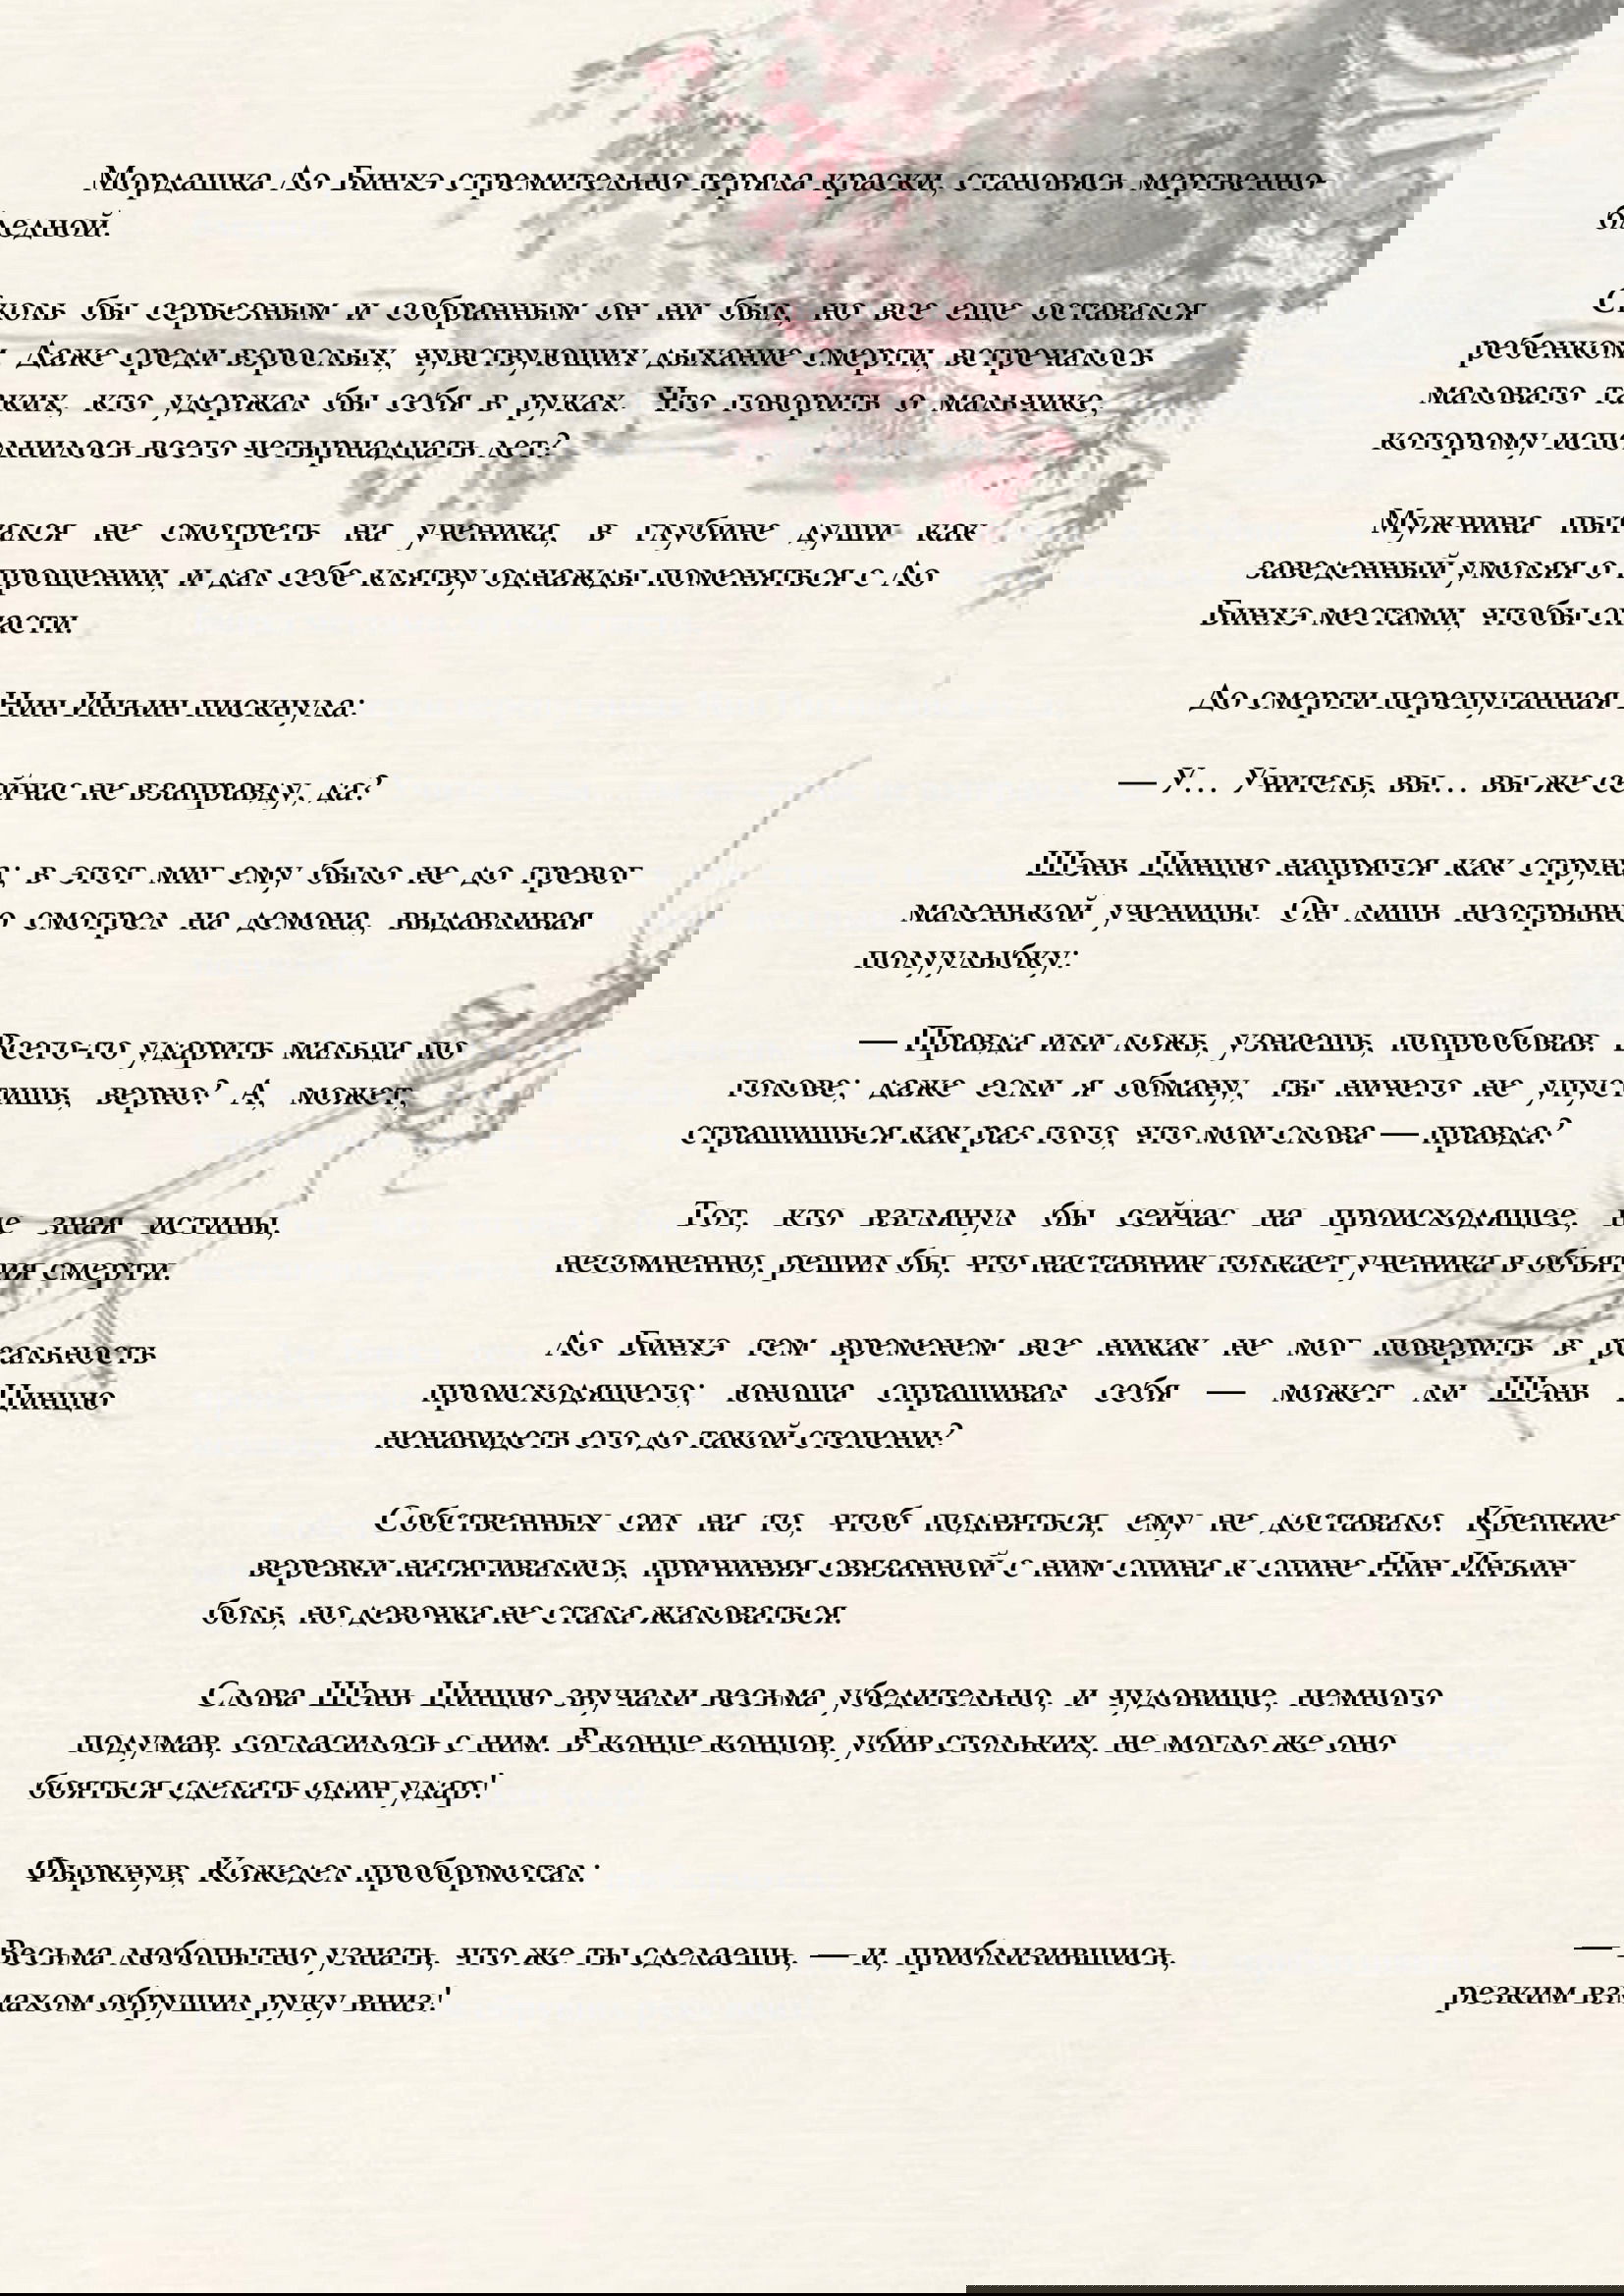 Мордашка Ло Бинхэ стремительно теряла краски, становясь мертвенно-
бледной.
Сколь бы серьезным и собранным он ни был, но все еще оставался
ребенком. Даже среди взрослых, чувствующих дыхание смерти, встречалось
маловато таких, кто удержал бы себя в руках. Что говорить о мальчике,
которому исполнилось всего четырнадцать лет?
Мужчина пытался не смотреть на ученика, в глубине души как
заведенный умоляя о прощении, и дал себе клятву однажды поменяться с Ло
Бинхэ местами, чтобы спасти.
До смерти перепуганная Нин Инъин пискнула:
— У… Учитель, вы… вы же сейчас не взаправду, да?
Шэнь Цинцю напрягся как струна; в этот миг ему было не до тревог
маленькой ученицы. Он лишь неотрывно смотрел на демона, выдавливая
полуулыбку:
— Правда или ложь, узнаешь, попробовав. Всего-то ударить мальца по
голове; даже если я обману, ты ничего не упустишь, верно? А, может,
страшишься как раз того, что мои слова — правда?
Тот, кто взглянул бы сейчас на происходящее, не зная истины,
несомненно, решил бы, что наставник толкает ученика в объятия смерти.
Ло Бинхэ тем временем все никак не мог поверить в реальность
происходящего; юноша спрашивал себя — может ли Шэнь Цинцю
ненавидеть его до такой степени?
Собственных сил на то, чтоб подняться, ему не доставало. Крепкие
веревки натягивались, причиняя связанной с ним спина к спине Нин Инъин
боль, но девочка не стала жаловаться.
Слова Шэнь Цинцю звучали весьма убедительно, и чудовище, немного
подумав, согласилось с ним. В конце концов, убив стольких, не могло же оно
бояться сделать один удар!
Фыркнув, Кожедел пробормотал:
— Весьма любопытно узнать, что же ты сделаешь, — и, приблизившись,
резким взмахом обрушил руку вниз!